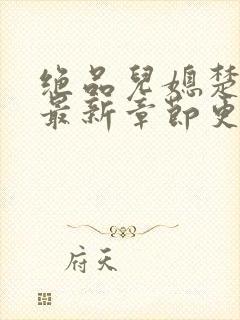 绝品儿媳楚
最新章节更
府天